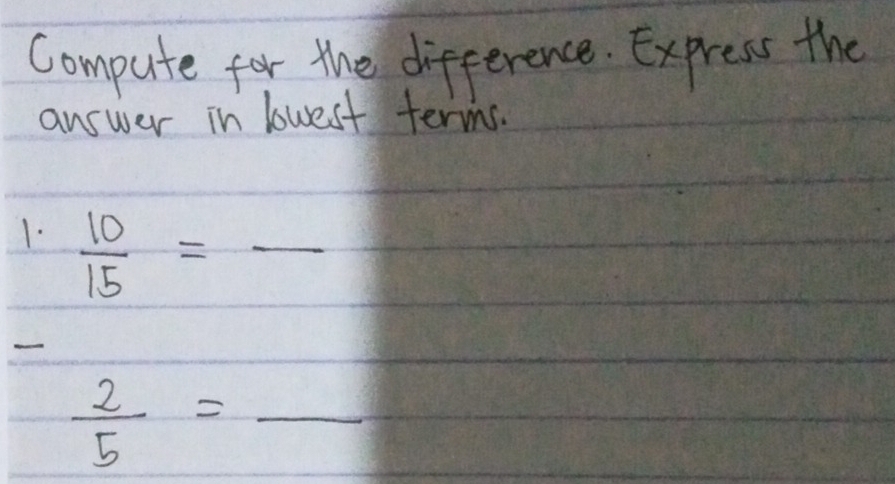 Compute for the difference. Express the
answer in lowest terms.
1. 10/15 = __
-
2/5 = __